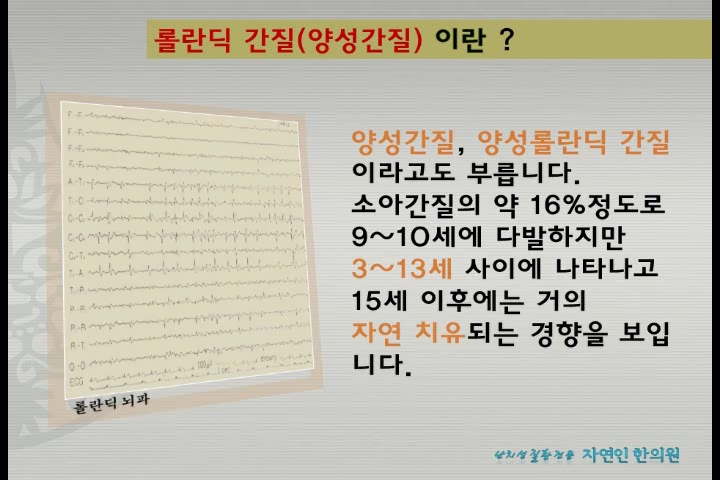 롤란딕 간질(양성간질) 이란 ?
양성간질, 양성롤란딕 간질
이라고도 부릅니다.
소아간질의 약 16%정도로
9~10세에 다발하지만
3~13세 사이에 나타나고
15세 이후에는 거의
자연 치유되는 경향을 보입
니다.
ECG
롤란딕 뇌파
자연인 한의원